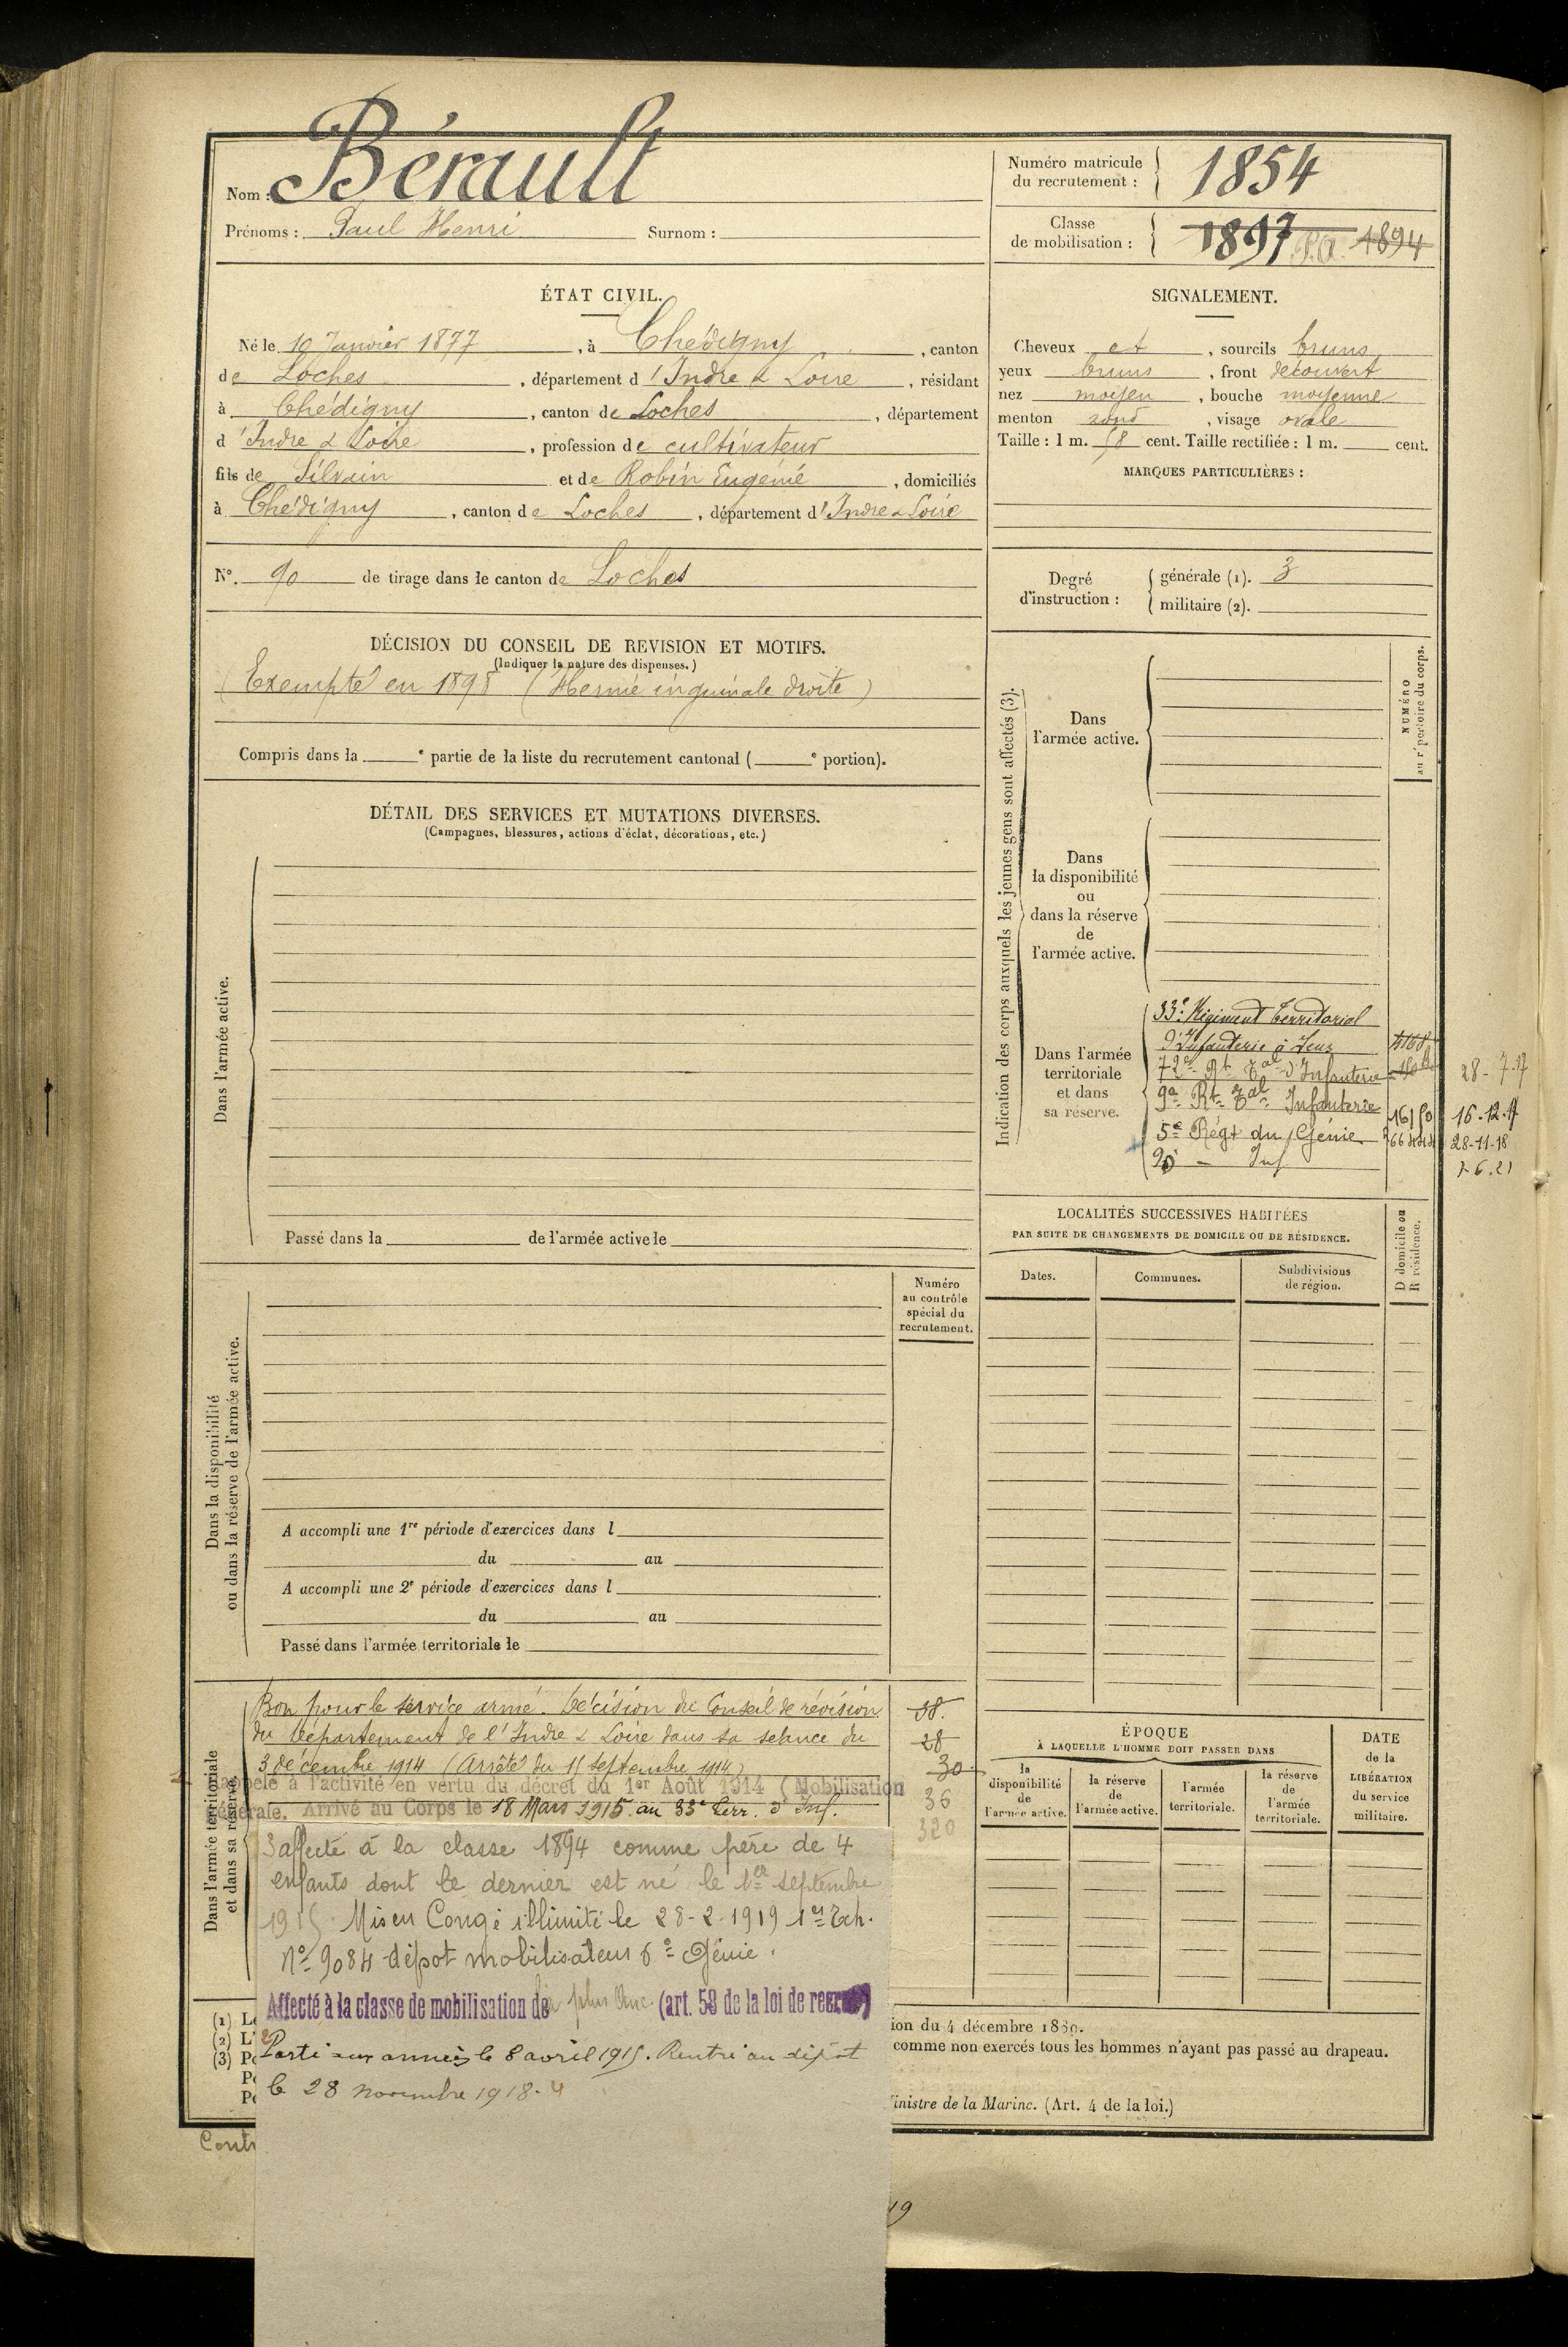 Nom : Bérault
Prénoms : Paul Henri Surnom :
Numéro matricule du recrutement : 1854
Classe de mobilisation : 1897 P.A. 1894
ÉTAT CIVIL.
Né le 10 Janvier 1877, à Chédigny, canton
de Loches, département d'Indre & Loire, résidant
à Chédigny, canton de Loches, département
d'Indre & Loire, profession de cultivateur
fils de Silvain et de Robin Eugénie, domiciliés
à Chédigny, canton de Loches, département d'Indre & Loire
N°. 90 de tirage dans le canton de Loches
SIGNALEMENT.
Cheveux et, sourcils bruns
yeux bruns, front découvert
nez moyen, bouche moyenne
menton rond, visage ovale
Taille : 1 m. 58 cent. Taille rectifiée : 1 m. cent.
MARQUES PARTICULIÈRES :
Degré d'instruction :
générale (1). 3
militaire (2).
DÉCISION DU CONSEIL DE REVISION ET MOTIFS.
(Indiquer la nature des dispenses.)
Exempté en 1898 (Hernie inguinale droite)
Compris dans la e partie de la liste du recrutement cantonal ( e portion).
DÉTAIL DES SERVICES ET MUTATIONS DIVERSES.
(Campagnes, blessures, actions d'éclat, décorations, etc.)
Dans l'armée active.
Passé dans la de l'armée active le
Indication des corps auxquels les jeunes gens sont affectés (3).
NUMÉRO
au répertoire du corps.
Dans
l'armée active.
Dans
la disponibilité
ou
dans la réserve
de
l'armée active.
Dans l'armée
territoriale
et dans
sa réserve.
33e Régiment Territorial
d'Infanterie à
72e Rt Tal d'Infanterie 28-7-17
9e Rt Tal Infanterie 16150 16.12.17
5e Régt du Génie 28-11-18
90 — Inf 1-6.21
LOCALITÉS SUCCESSIVES HABITÉES
PAR SUITE DE CHANGEMENTS DE DOMICILE OU DE RÉSIDENCE.
Dates.
Communes.
Subdivisions
de région.
D domicile ou
R résidence.
Dans la disponibilité
ou dans la réserve de l'armée active.
Numéro
au contrôle
spécial du
recrutement.
A accompli une 1re période d'exercices dans l
du au
A accompli une 2e période d'exercices dans l
du au
Passé dans l'armée territoriale le
Dans l'armée territoriale
et dans sa réserve.
Bon pour le service armé. Décision du Conseil de révision
du Département de l'Indre & Loire dans sa séance du
3 décembre 1914 (Arrêté du 15 septembre 1914)
Rappelé à l'activité en vertu du décret du 1er Août 1914 (Mobilisation
Générale. Arrivé au Corps le 18 Mars 1915 au 33e Terr. d'Inf.
38.
28
30
36
320
3 affecté à la classe 1894 comme père de 4
enfants dont le dernier est né le 1er septembre
1915. Mis en Congé illimité le 28-2-1919 1er Ech.
N° 9084 dépot mobilisateur 5e Génie.
Affecté à la classe de mobilisation de la plus Anc. (art. 58 de la loi de recr
2 Parti aux armées le 8 avril 1915. Rentré au dépôt
le 28 novembre 1918. 4
ÉPOQUE
À LAQUELLE L'HOMME DOIT PASSER DANS
la
disponibilité
de
l'armée active.
la réserve
de
l'armée active.
l'armée
territoriale.
la réserve
de
l'armée
territoriale.
DATE
de la
LIBÉRATION
du service
militaire.
(1) L
(2) L'
(3) P
P
P
ion du 4 décembre 1889.
comme non exercés tous les hommes n'ayant pas passé au drapeau.
inistre de la Marine. (Art. 4 de la loi.)
Cont
19